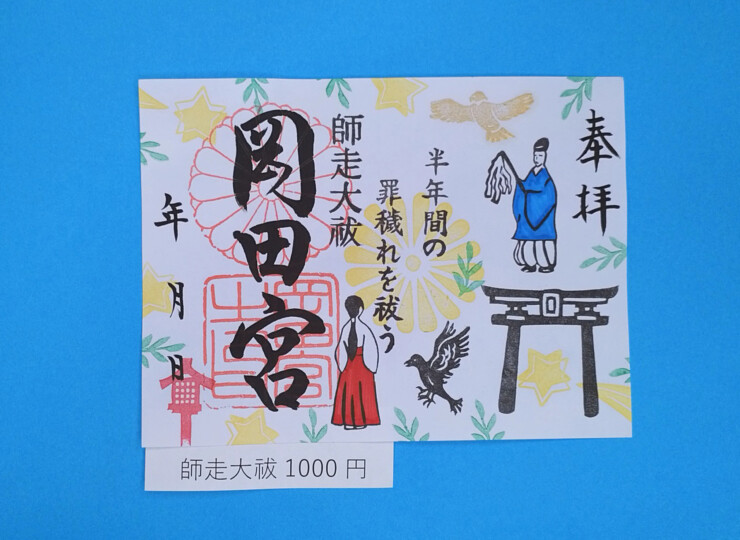 奉拝
半年間の
罪穢れを祓う
師走大祓
岡田宮
年
月
日
師走大祓 1000 円